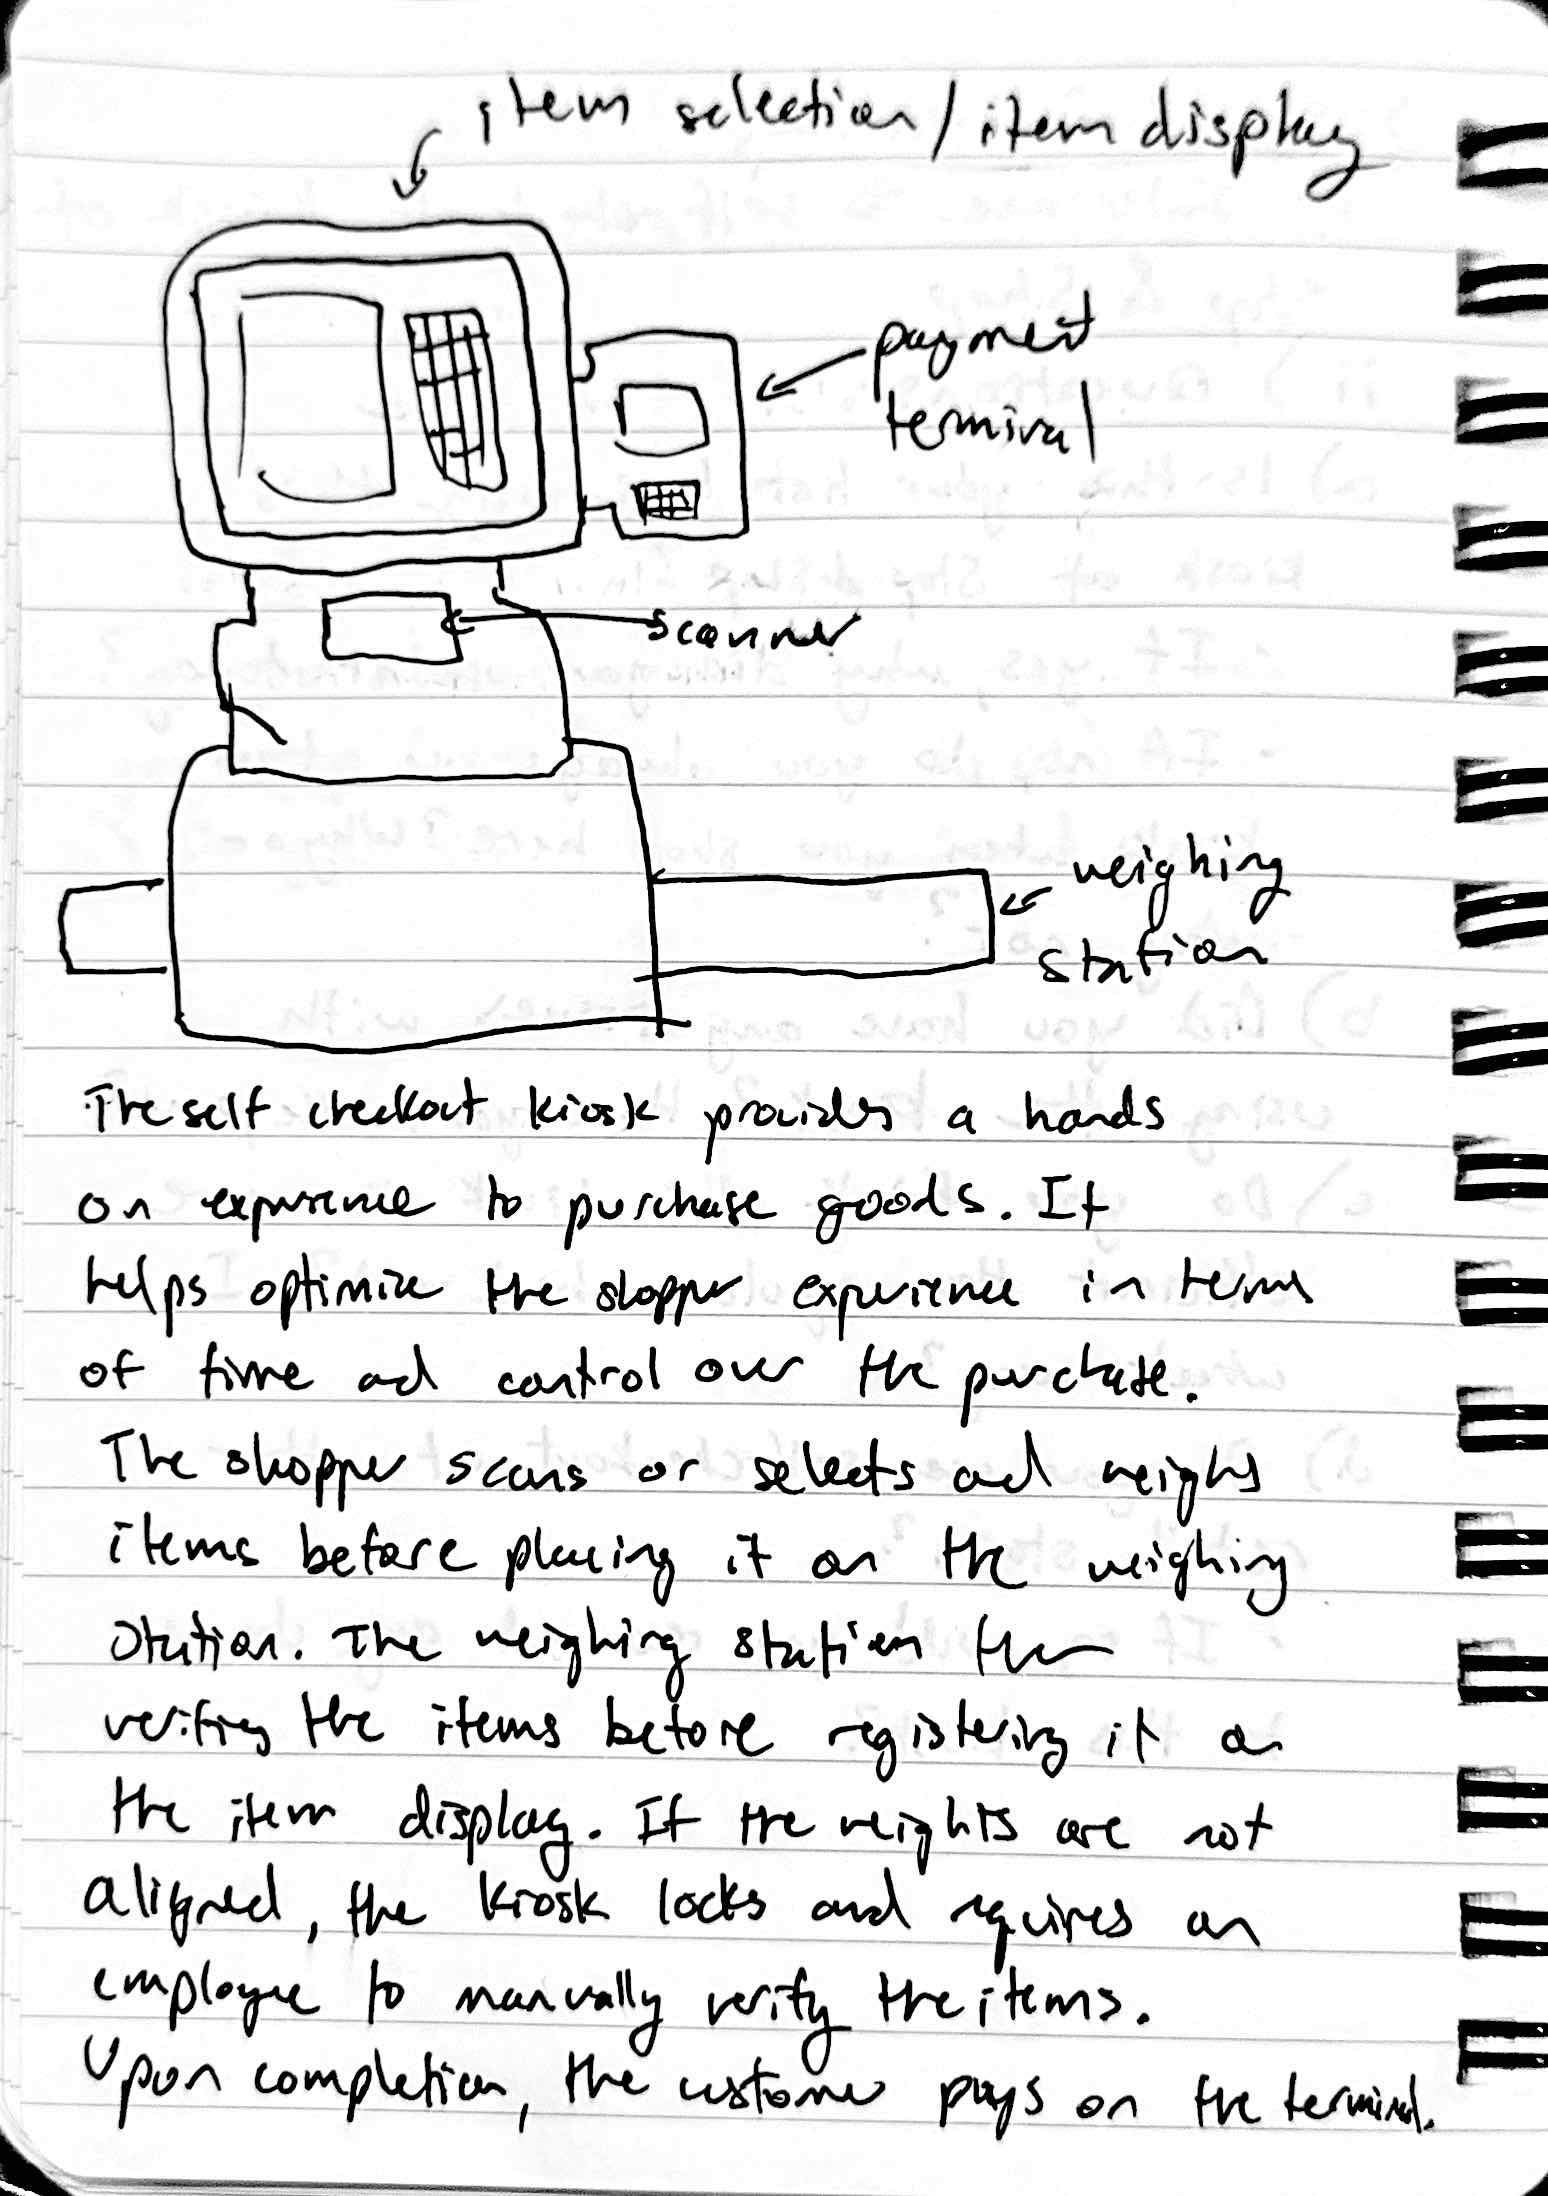 item selection / item display
payment
terminal
scanner
weighing
station
The self checkout kiosk provides a hands
on experience to purchase goods. It
helps optimize the shopper experience in terms
of time ad control over the purchase.
The shopper scans or selects ad weighs
items before placing it on the weighing
station. The weighing station then
verifies the items before registering it on
the item display. If the weights are not
aligned, the kiosk locks and requires an
employee to manually verify the items.
Upon completion, the customer pays on the terminal.